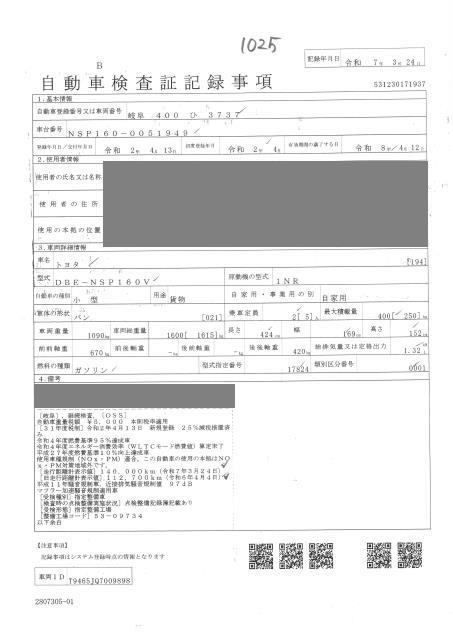 1025
記録年月日 令和 7年 3月 24日
B
自動車検査証記録事項
531230171937
1.基本情報
自動車登録番号又は車両番号 岐阜 400 ひ 3737
車台番号 NSP160-0051949
登録年月日/交付年月日 令和 2年 4月 13日 初度登録年月 令和 2年 4月 有効期間の満了する日 令和 8年 4月 12日
2.使用者情報
使用者の氏名又は名称
使用者の住所
使用の本拠の位置
3.車両詳細情報
車名 トヨタ [194]
型式 DBE-NSP160V 原動機の型式 1NR
自動車の種別 小型 用途 貨物 自家用・事業用の別 自家用
車体の形状 バン [021] 乗車定員 2[ 5]人 最大積載量 400[ 250]kg
車両重量 1090kg 車両総重量 1600[ 1615]kg 長さ 424cm 幅 169cm 高さ 152cm
前前軸重 670kg 前後軸重 -kg 後前軸重 -kg 後後軸重 420kg 総排気量又は定格出力 1.32
燃料の種類 ガソリン 型式指定番号 17824 類別区分番号 0001
4.備考
[岐阜],継続検査,[OSS]
自動車重量税額 ¥5,000 本則税率適用
[31年度税制]令和2年4月13日 新規登録 25%減税措置済み
令和4年度燃費基準95%達成車
令和4年度エネルギー消費効率(WLTCモード燃費値)算定未了
平成27年度燃費基準10%向上達成車
使用車種規制(NOx・PM)適合,この自動車の使用の本拠はNOx・PM対策地域外です。
[走行距離計表示値]140,000km(令和7年3月24日)
[旧走行距離計表示値]112,700km(令和6年4月4日)
平成11年騒音規制車,近接排気騒音規制値 97dB
マフラー加速騒音規制適用車
[受検種別]指定整備車
[検査時の点検整備実施状況]点検整備記録簿記載あり
[受検形態]指定整備工場
[整備工場コード]53-09734
以下余白
【注意事項】
記録事項はシステム登録時点の情報となります
車両ID T9465JQ7009898
2807305-01